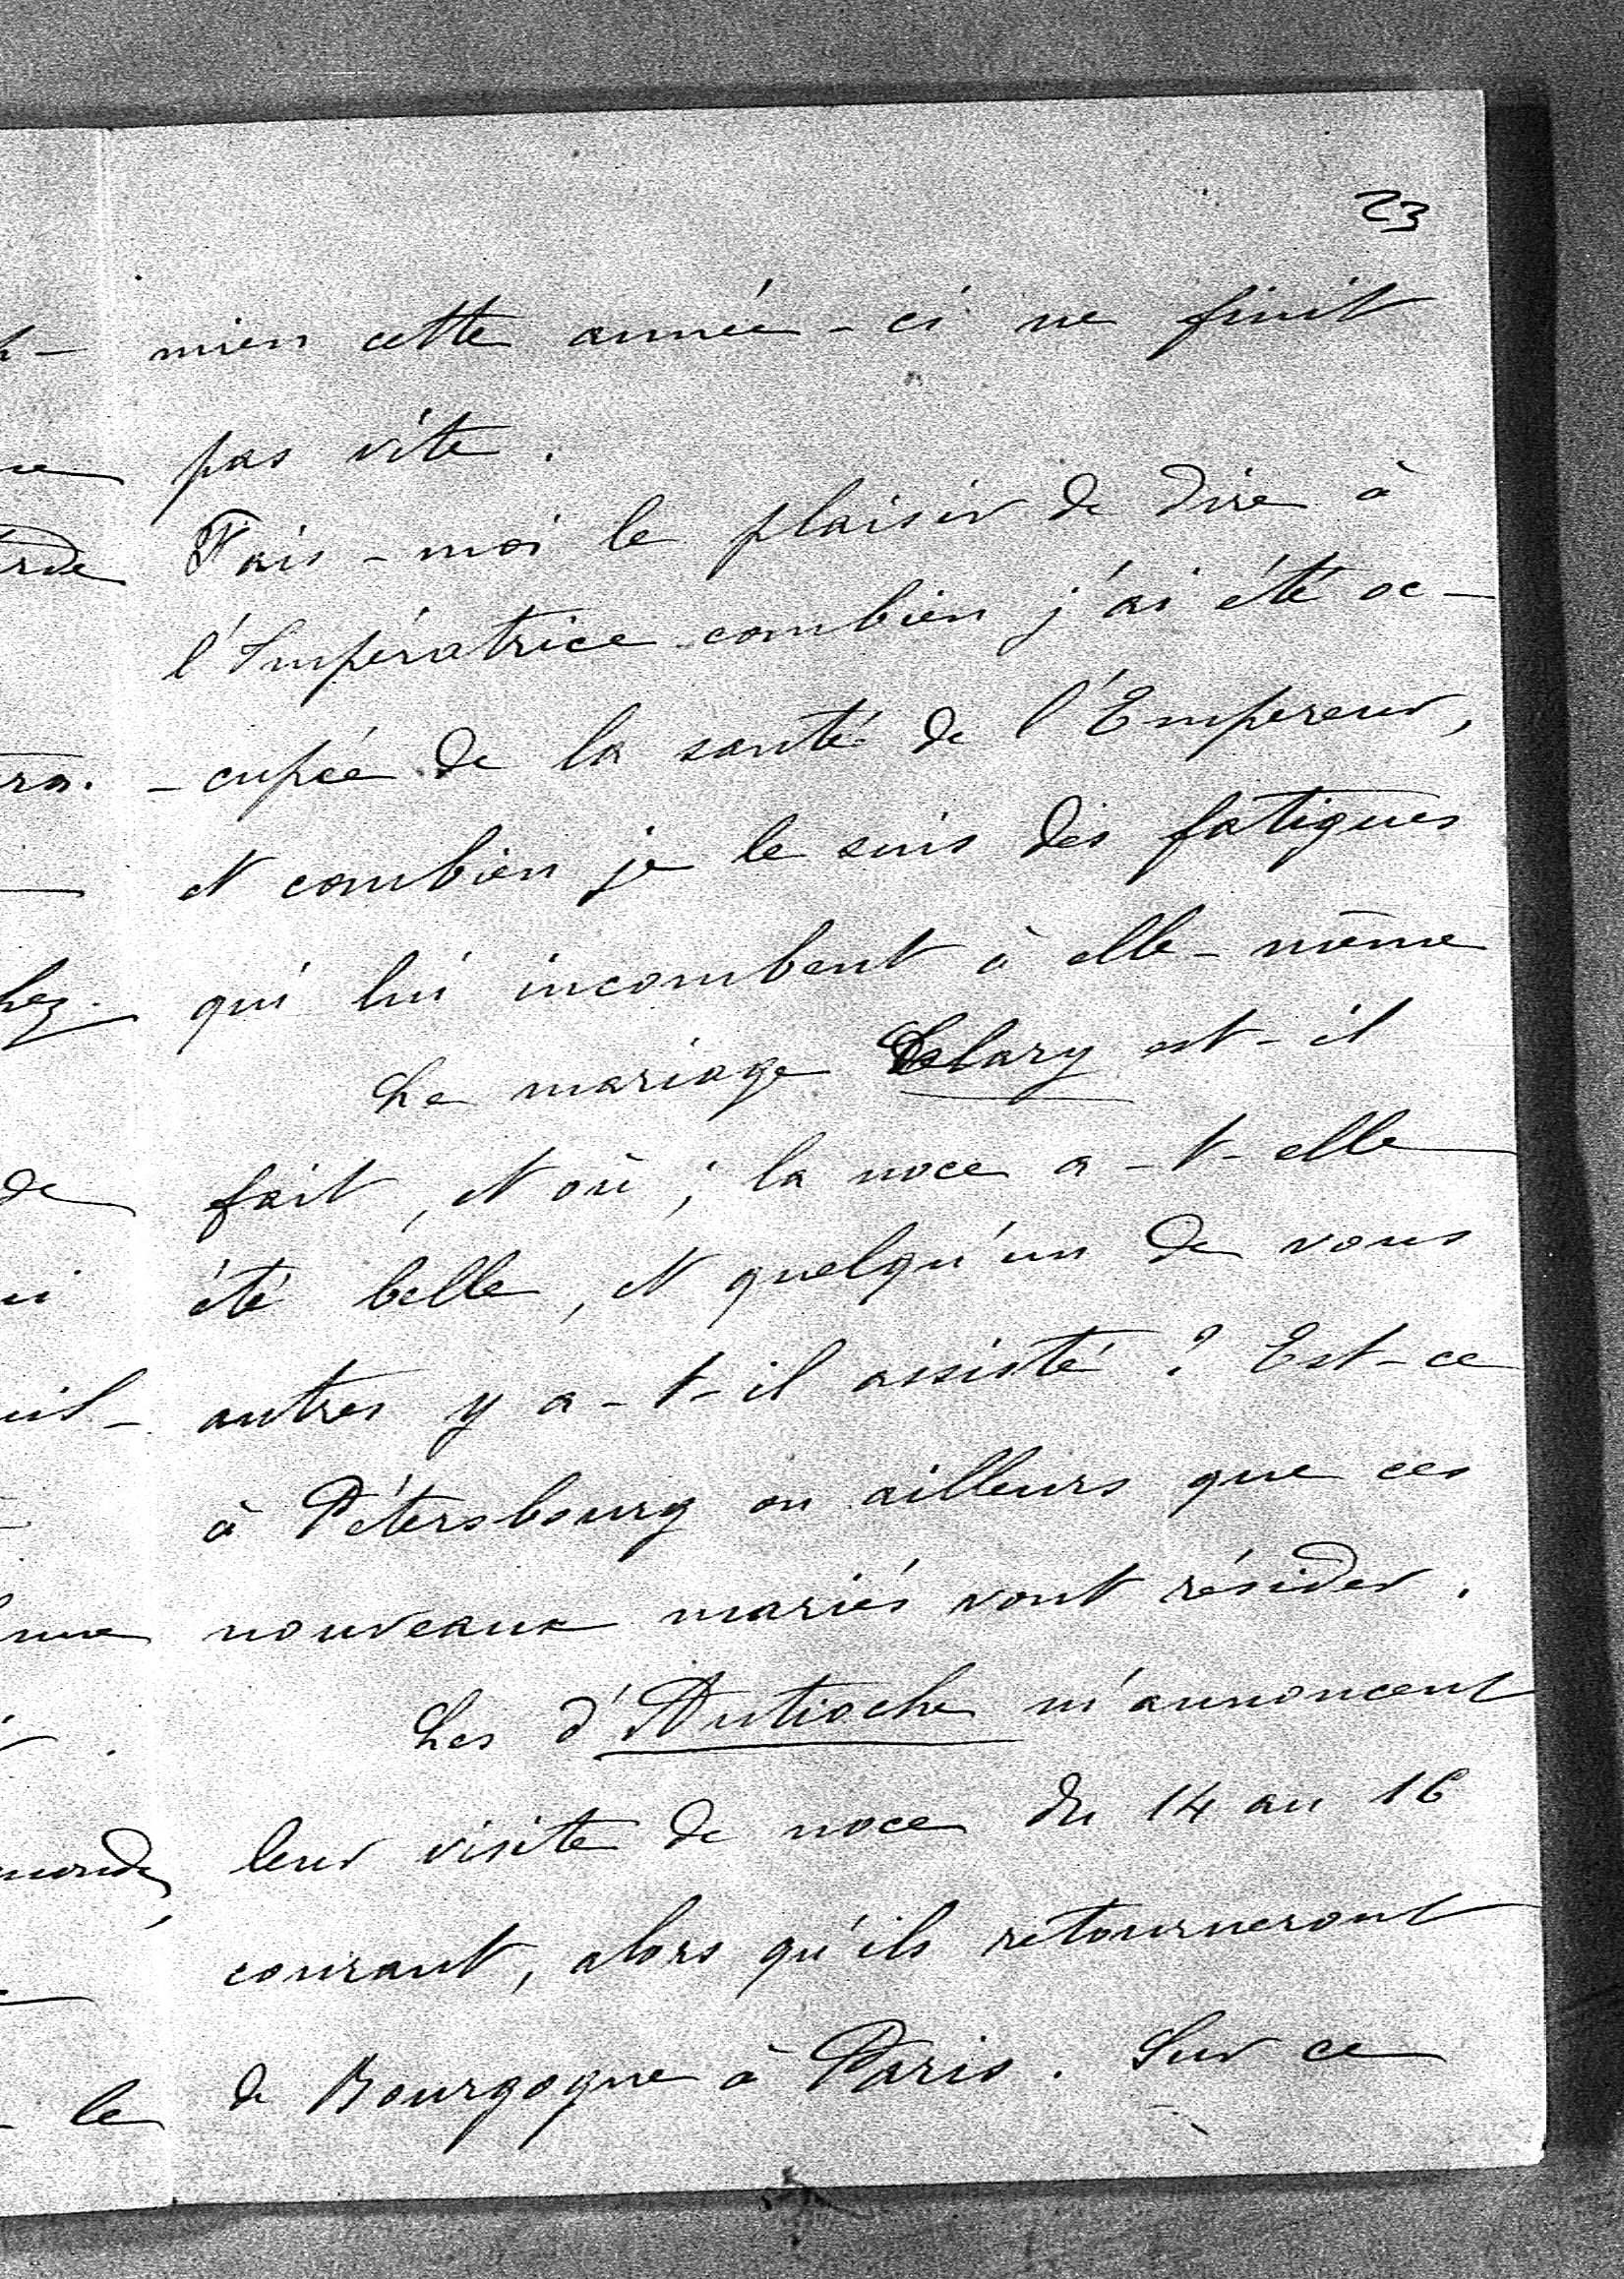 23
mien cette année-ci ne finit
pas vite.
Fais-moi le plaisir de dire à
l'Impératrice combien j'ai été oc-
-cupée de la santé de l'Empereur,
et combien je le suis des fatigues
qui lui incombent à elle-même
Le mariage est-il
fait, et où; la noce a-t-elle
été belle, et quelqu'un de vous
autres y a-t-il assisté? Est-ce
à Pétersbourg ou ailleurs que ces
nouveaux mariés vont résider.
Les d'Antioche m'annoncent
leur visite de noce du 14 au 16
courant, alors qu'ils retourneront
de Bourgogne à Paris. Sur ce